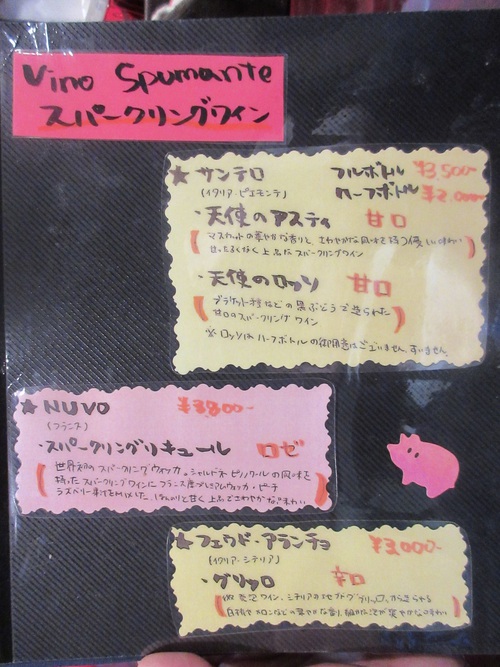 Vino Spumante
スパークリングワイン
★ サンテロ フルボトル ¥3,500-
(イタリア・ピエモンテ) ハーフボトル ¥2,000-
・天使のアスティ 甘口
マスカットの華やかな香りと、さわやかな風味を持つ優しい味わい
甘ったるくなく上品なスパークリングワイン
・天使のロッソ 甘口
ブラケット種などの黒ぶどうで造られた
甘口のスパークリングワイン
※ロッソはハーフボトルの御用意はございません。すいません。
★ NUVO ¥3,800-
(フランス)
・スパークリングリキュール ロゼ
世界初のスパークリングウォッカ。シャルドネ・ピノノワールの風味を
持ったスパークリングワインにフランス産プレミアムウォッカ・ピーチ
ラズベリー果汁をMIXした、ほんのりと甘く上品でさわやかな味わい
★ フェウド・アランチョ ¥3,000-
(イタリア・シチリア)
・グリッロ 辛口
発泡ワイン。シチリアの地ブドウ、グリッロから造られる
メロンなどの華やかな香り、細かな泡が爽やかな味わい